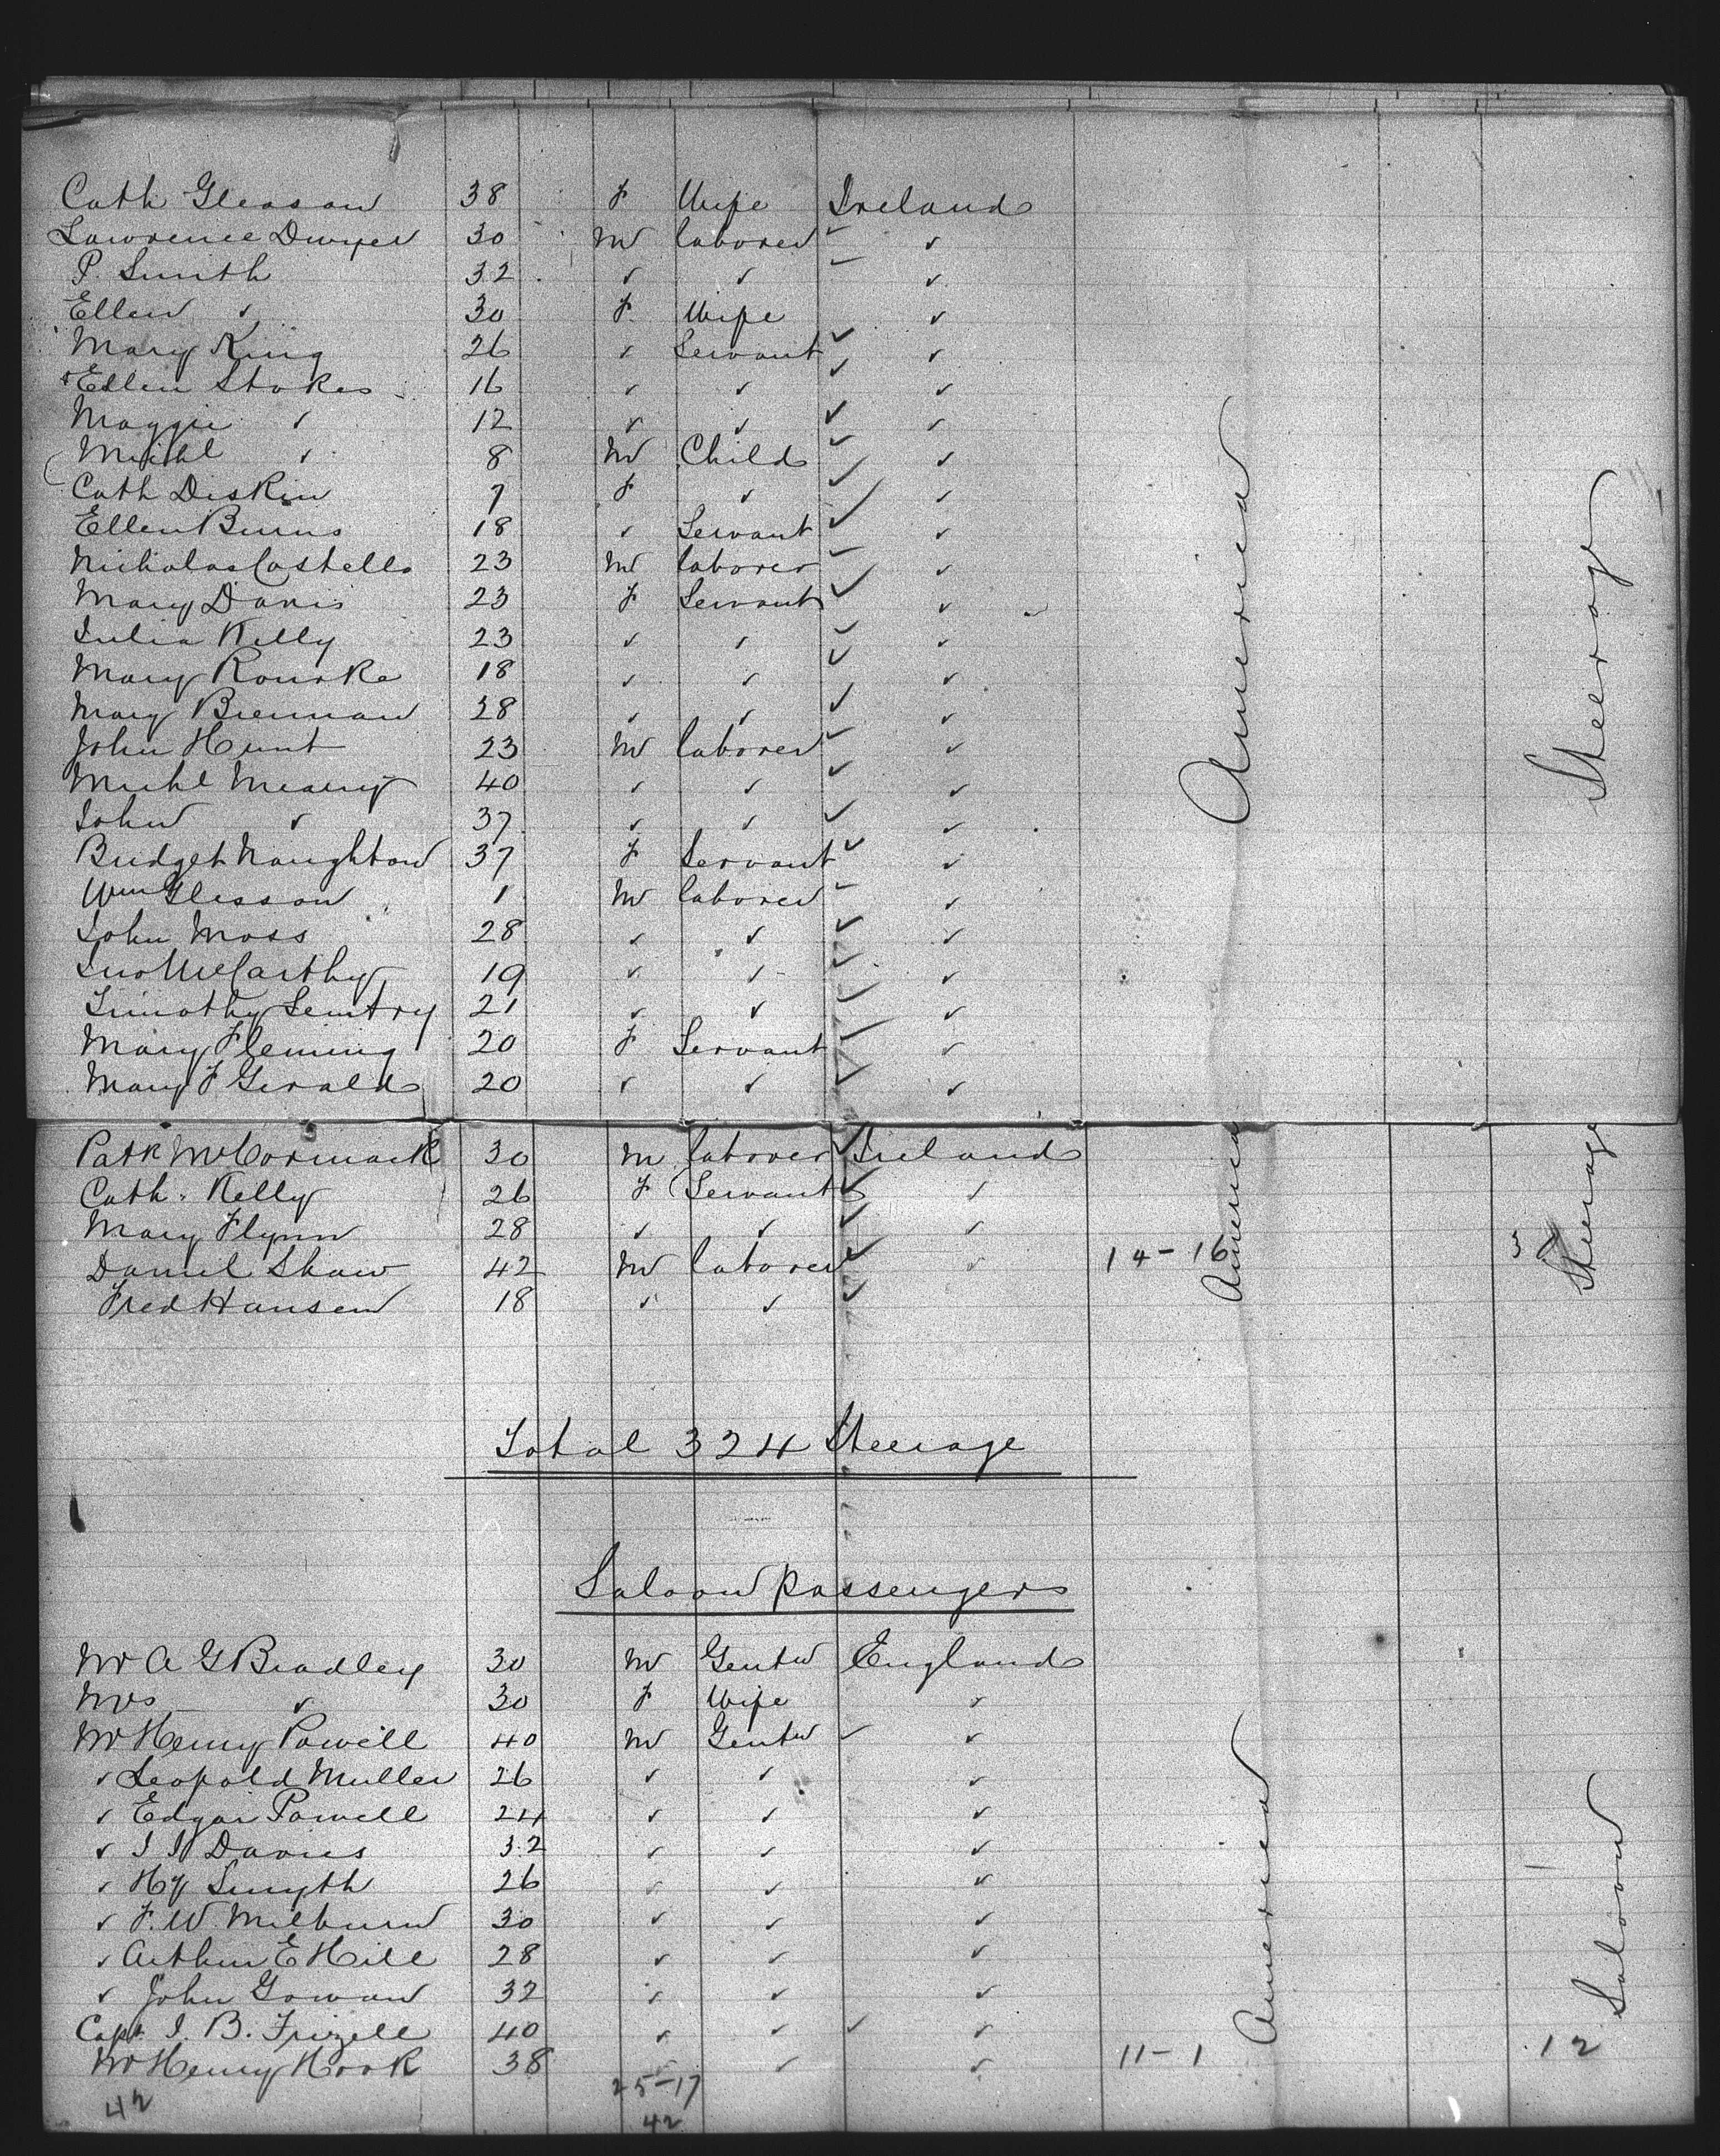 Cath Gleason 38 F Wife Ireland
Lawrence Dwyer 30 M laborer ✓ ✓
P. Smith 32 ✓ ✓ ✓
Ellen ✓ 30 F. Wife ✓
Mary King 26 ✓ Servant ✓ ✓
Ellen Stokes 16 ✓ ✓ ✓ ✓
Maggie ✓ 12 ✓ ✓ ✓ ✓
Michl ✓ 8 M Child ✓ ✓
Cath Diskin 7 F ✓ ✓ ✓
Ellen Burns 18 ✓ Servant ✓ ✓
Nicholas Costello 23 M laborer ✓ ✓
Mary Davis 23 F Servant ✓ ✓
Julia Kelly 23 ✓ ✓ ✓ ✓
Mary Rourke 18 ✓ ✓ ✓ ✓
Mary Brennan 28 ✓ ✓ ✓ ✓
John Hunt 23 M laborer ✓ ✓
Michl 40 ✓ ✓ ✓ ✓
John ✓ 37 ✓ ✓ ✓ ✓
Bridget Naughton 37 F Servant ✓ ✓
Wm Glesson 1 M laborer ✓ ✓
John Moss 28 ✓ ✓ ✓ ✓
Jno McCarthy 19 ✓ ✓ ✓ ✓
Timothy 21 ✓ ✓ ✓ ✓
Mary Fleming 20 F Servant ✓ ✓
Mary F Gerald 20 ✓ ✓ ✓ ✓
America
Steerage
Patk McCormack 30 M laborer ✓ Ireland
Cath. Kelly 26 F Servant ✓ ✓
Mary Flynn 28 ✓ ✓ ✓ ✓
Daniel Shaw 42 M laborer ✓ ✓ 14-16
Fred Hansen 18 ✓ ✓ ✓
America
Steerage
Total 324 Steerage
Saloon Passengers
Mr A G Bradley 30 M Gentn England
Mrs ✓ 30 F Wife ✓
Mr Henry Powell 40 M Gentn ✓ ✓
✓ Leopold Muller 26 ✓ ✓ ✓
✓ Edgar Powell 24 ✓ ✓ ✓
✓ J J Davies 32 ✓ ✓ ✓
✓ Hy Smyth 26 ✓ ✓ ✓
✓ F. W. Milburn 30 ✓ ✓ ✓
✓ Arthur E Hill 28 ✓ ✓ ✓
✓ John Gowan 32 ✓ ✓ ✓
Capt J. B. Frizell 40 ✓ ✓ ✓ ✓
Mr Henry Hook 38 ✓ ✓ ✓ 11-1 12
America
Saloon
42 25-17
42